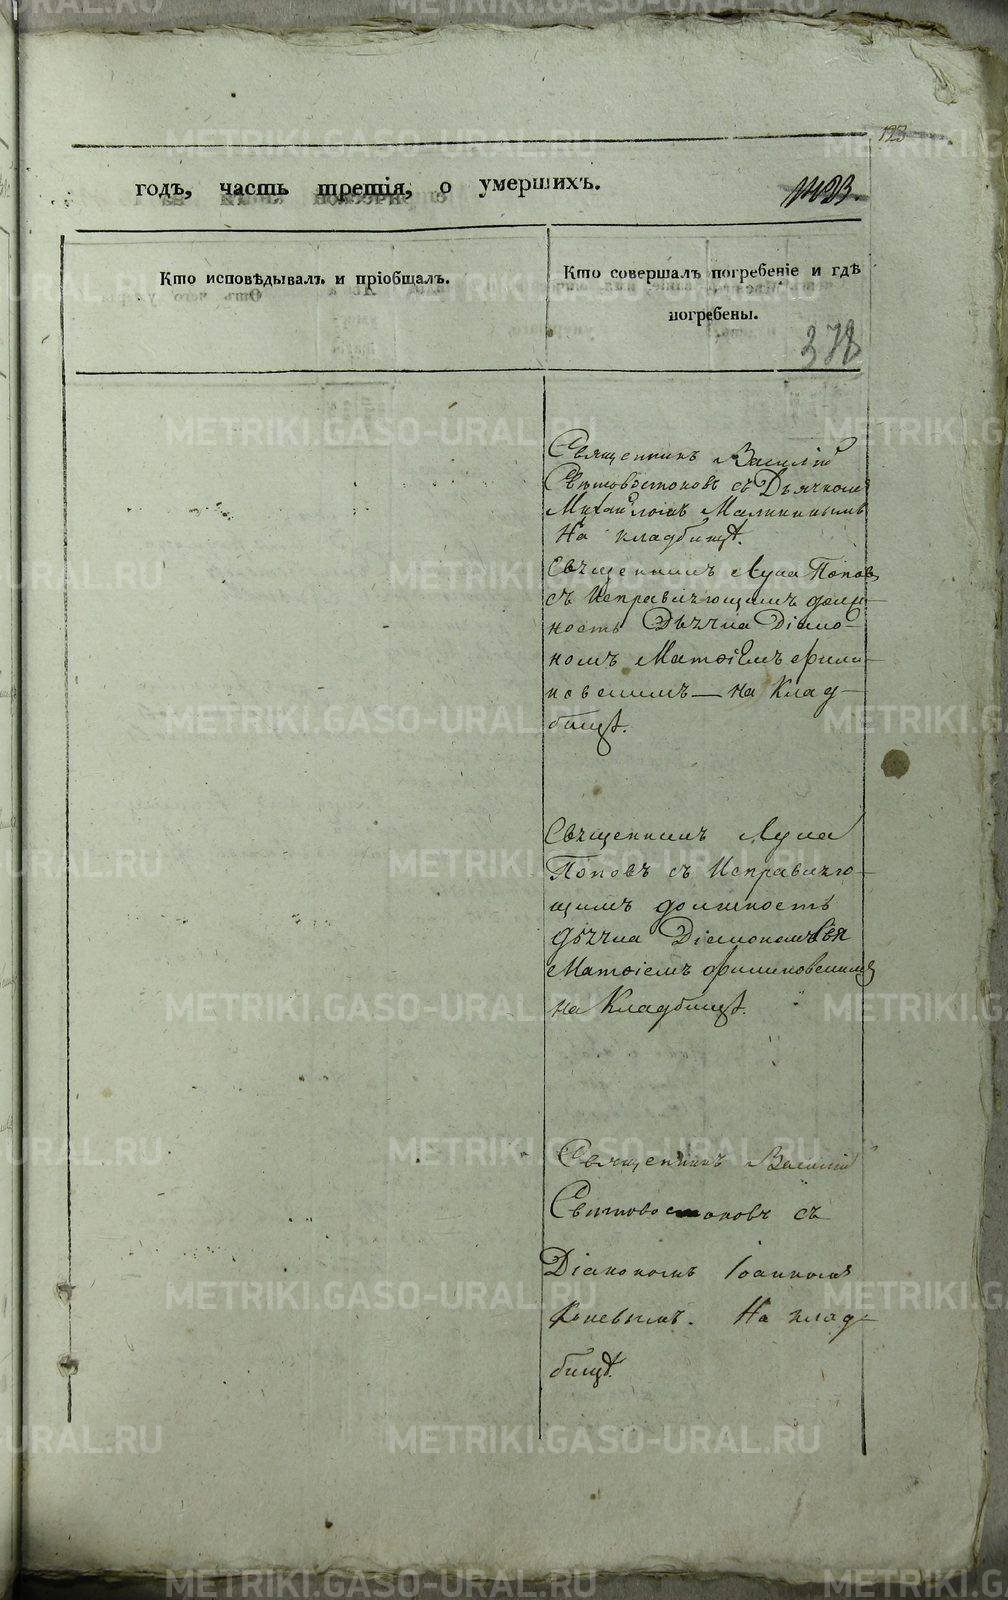 123
годъ, часть третія, о умершихъ.
Кто исповѣдывалъ и пріобщалъ.
Кто совершалъ погребеніе и гдѣ
погребены.
378
Священникъ Василій
Свѣтовостоковъ съ Дьячкомъ
Михаиломъ Малининымъ
На кладбищѣ.
Священникъ Лука Поповъ
съ Исправляющимъ долж-
ность Дьячка Діако-
номъ Матѳіемъ Филип-
повскимъ — на Клад-
бищѣ.
Священникъ Лука
Поповъ съ Исправляю-
щимъ должность
дьячка Діакономъ
Матѳіемъ Филиповскимъ
на Кладбищѣ.
Священникъ Василій
Свѣтовостоковъ съ
Діакономъ Іоанномъ
Коневымъ. На клад-
бищѣ.
METRIKI.GASO-URAL.RU